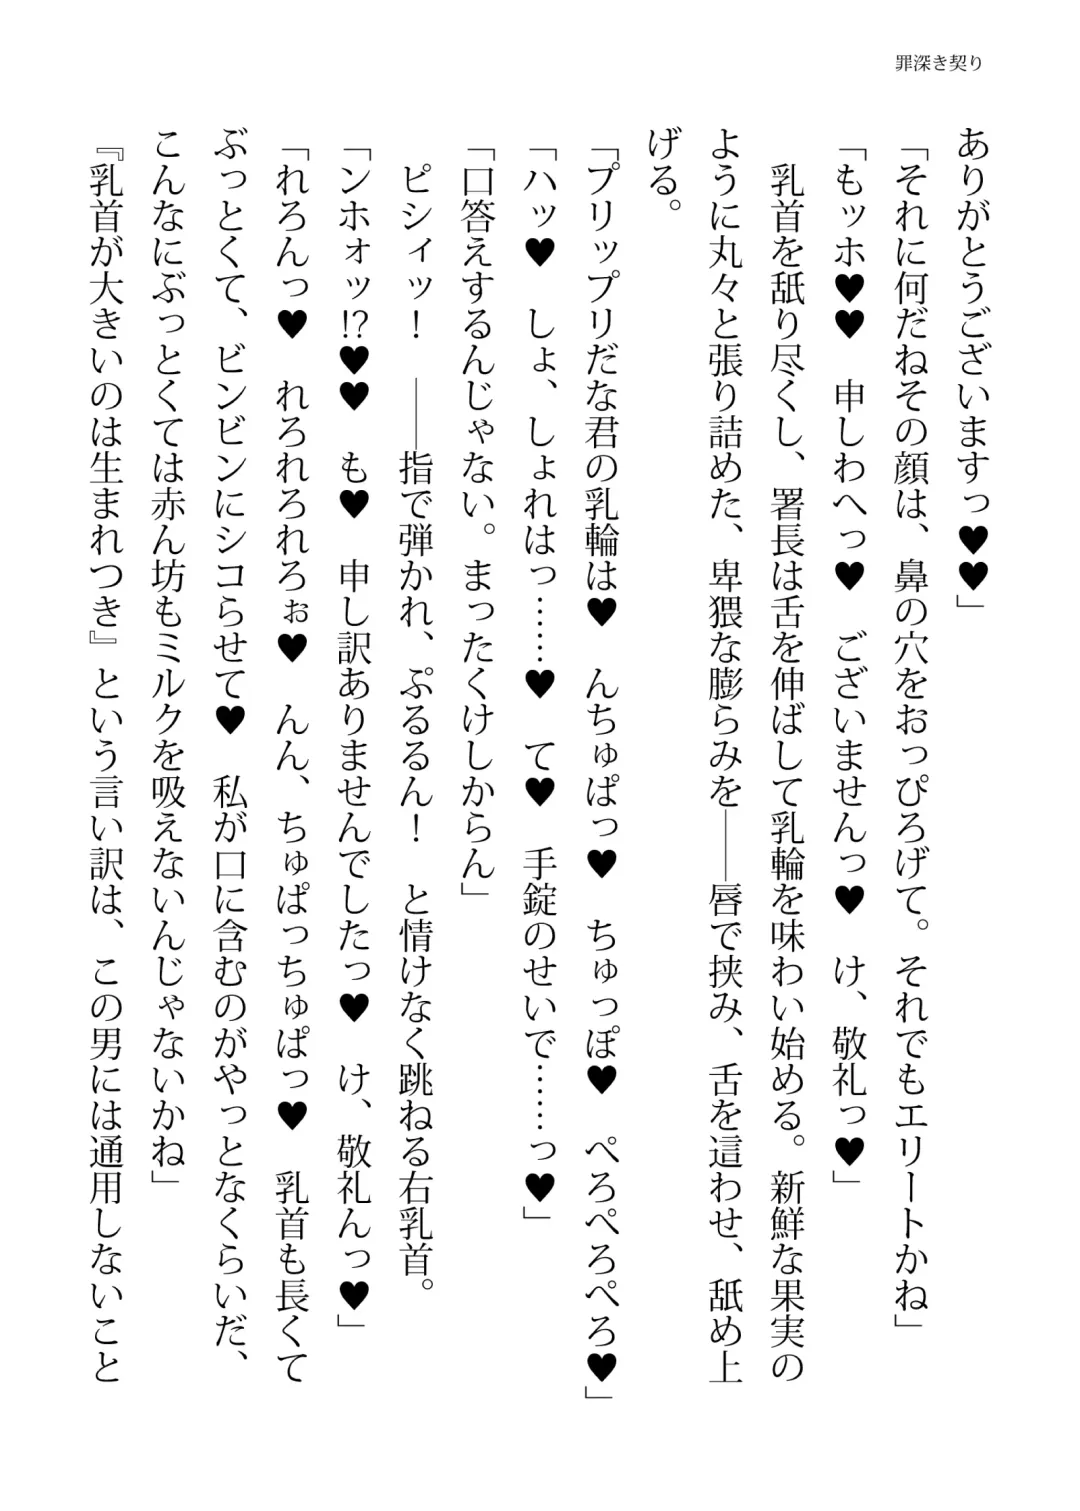 罪深き契り
ありがとうございますっ♥♥」
「それに何だねその顔は、鼻の穴をおっぴろげて。それでもエリートかね」
「もッホ♥♥　申しわへっ♥　ございませんっ♥　け、敬礼っ♥」
　乳首を舐り尽くし、署長は舌を伸ばして乳輪を味わい始める。新鮮な果実の
ように丸々と張り詰めた、卑猥な膨らみを――唇で挟み、舌を這わせ、舐め上
げる。
「プリップリだな君の乳輪は♥　んちゅぱっ♥　ちゅっぽ♥　ぺろぺろぺろ♥」
「ハッ♥　しょ、しょれはっ……♥　て♥　手錠のせいで……っ♥」
「口答えするんじゃない。まったくけしからん」
　ピシィッ！　――指で弾かれ、ぷるるん！　と情けなく跳ねる右乳首。
「ンホォッ!?♥♥　も♥　申し訳ありませんでしたっ♥　け、敬礼んっ♥」
「れろんっ♥　れろれろれろぉ♥　んん、ちゅぱっちゅぱっ♥　乳首も長くて
ぶっとくて、ビンビンにシコらせて♥　私が口に含むのがやっとなくらいだ、
こんなにぶっとくては赤ん坊もミルクを吸えないんじゃないかね」
『乳首が大きいのは生まれつき』という言い訳は、この男には通用しないこと